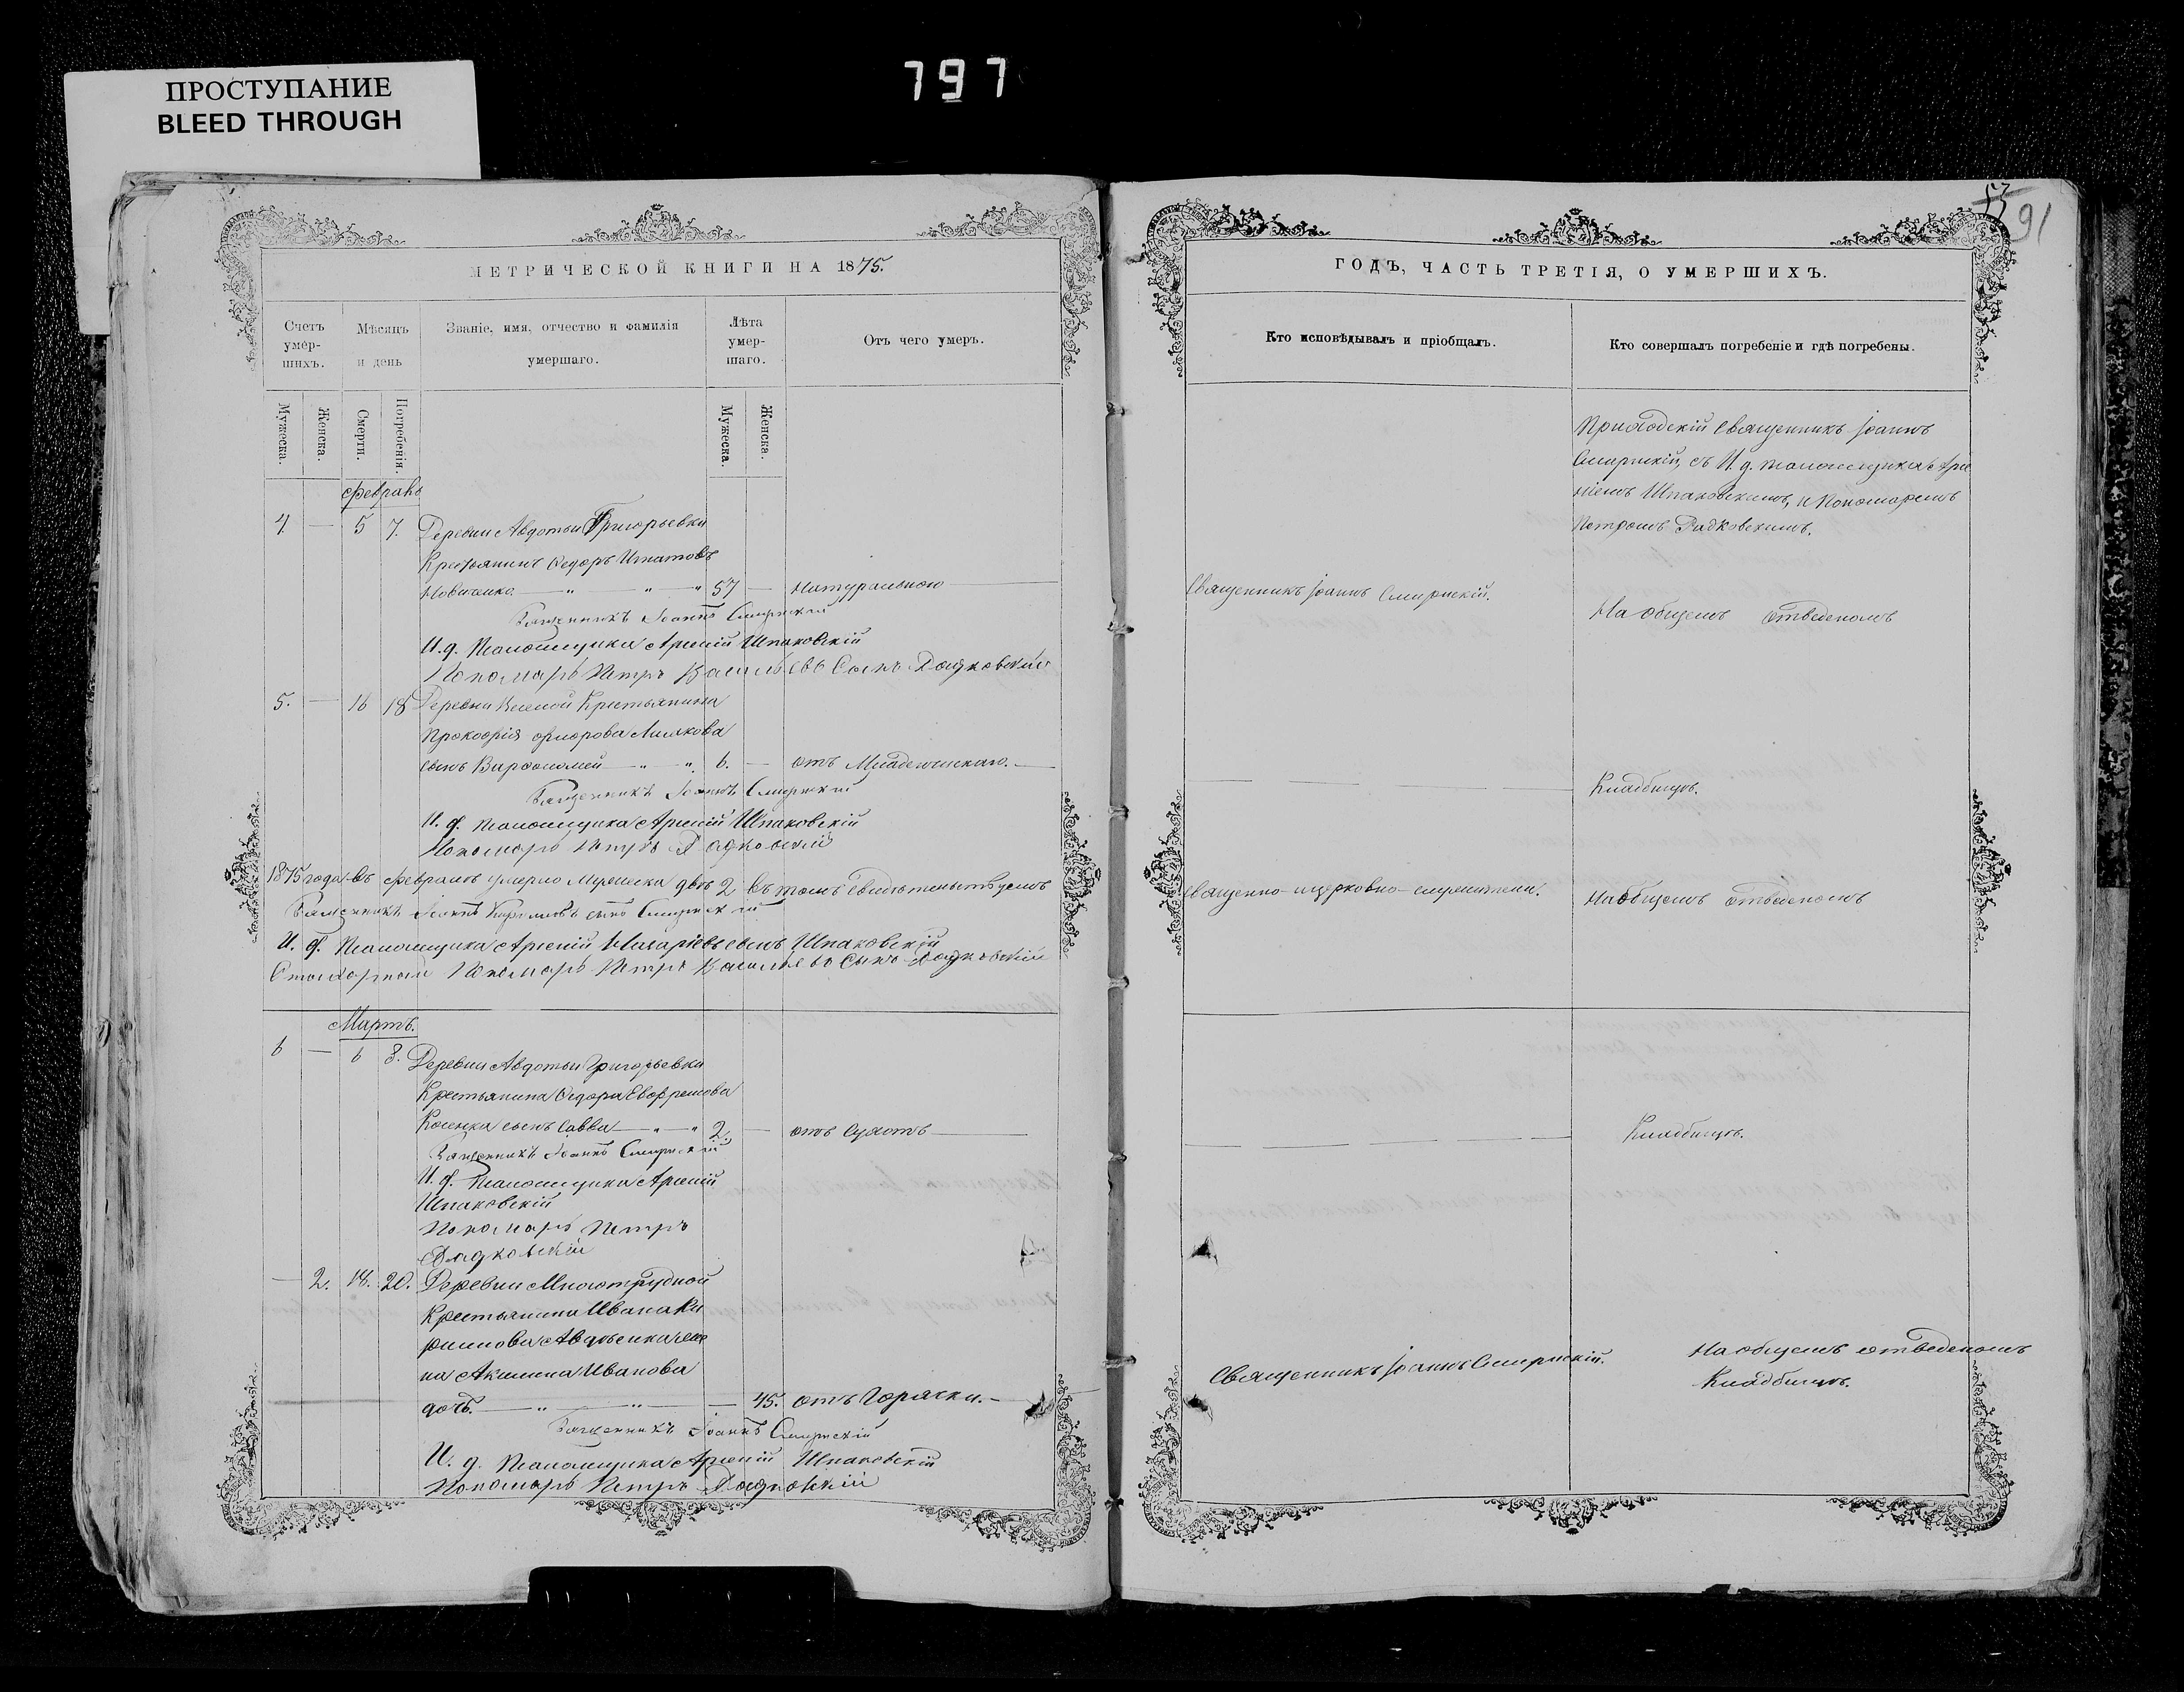 ПРОСТУПАНИЕ
BLEED THROUGH
797
МЕТРИЧЕСКОЙ КНИГИ НА 1875.
Счетъ умер-шихъ.
Мѣсяцъ и день
Званіе, имя, отчество и фамилія умершаго.
Лѣта умер-шаго.
Отъ чего умеръ.
Мужеска.
Женска.
Смерти.
Погребенія.
Мужеска.
Женска.
Февраль
4. — 5 7. Деревни Авдотьи Григорьевки
Крестьянинъ Ѳедоръ Игнатовъ
Новиченко — " — " — " 57 — Натуральною
Священникъ Іоаннъ Смирнскій
И. д. Псаломщика Арсеній Шпаковскій
Пономарь Петръ Васильевъ Сынъ Радковскій
5. — 16 18 Деревни Крестьянина
Прокофія
сынъ Варфоломей — " — " 6. — отъ Младенческаго.
Священникъ Іоаннъ Смирнскій
И. д. Псаломщика Арсеній Шпаковскій
Пономарь Петръ Радковскій
1875 года въ Февралѣ умерло Мужеска два 2 въ томъ свидѣтельствуемъ
Священникъ Іоаннъ сынъ Смирнскій
И. д. Псаломщика Арсеній сынъ Шпаковскій
Пономарь Петръ Васильевъ Сынъ Радковскій
Мартъ.
6 — 6 8. Деревни Авдотьи Григорьевки
Крестьянина Ѳедора Евфремова
Косенка сынъ Савва — " — " 2. — отъ Сухотъ
Священникъ Іоаннъ Смирнскій
И. д. Псаломщика Арсеній
Шпаковскій
Пономарь Петръ
Радковскій
— 2. 18. 20. Деревни Многотрудной
Крестьянина Ивана Ки
рилова Авдѣенка же
на Акилина Иванова
дочь. — " — " — 45. отъ Горячки.
Священникъ Іоаннъ Смирнскій
И. д. Псаломщика Арсеній Шпаковскій
Пономарь Петръ Радковскій
57
91
ГОДЪ, ЧАСТЬ ТРЕТІЯ, О УМЕРШИХЪ.
Кто исповѣдывалъ и пріобщалъ.
Кто совершалъ погребеніе и гдѣ погребены.
Приходскій Священникъ Іоаннъ
Смирнскій, съ И. д. псаломщика Арсе
ніемъ Шпаковскимъ, и Пономаремъ
Петромъ Радковскимъ.
Священникъ Іоаннъ Смирнскій.
На общемъ отведеномъ
Кладбищѣ.
Священно-церковно-служители.
На общемъ отведеномъ
Кладбищѣ.
Священникъ Іоаннъ Смирнскій.
На общемъ отведеномъ
Кладбищѣ.